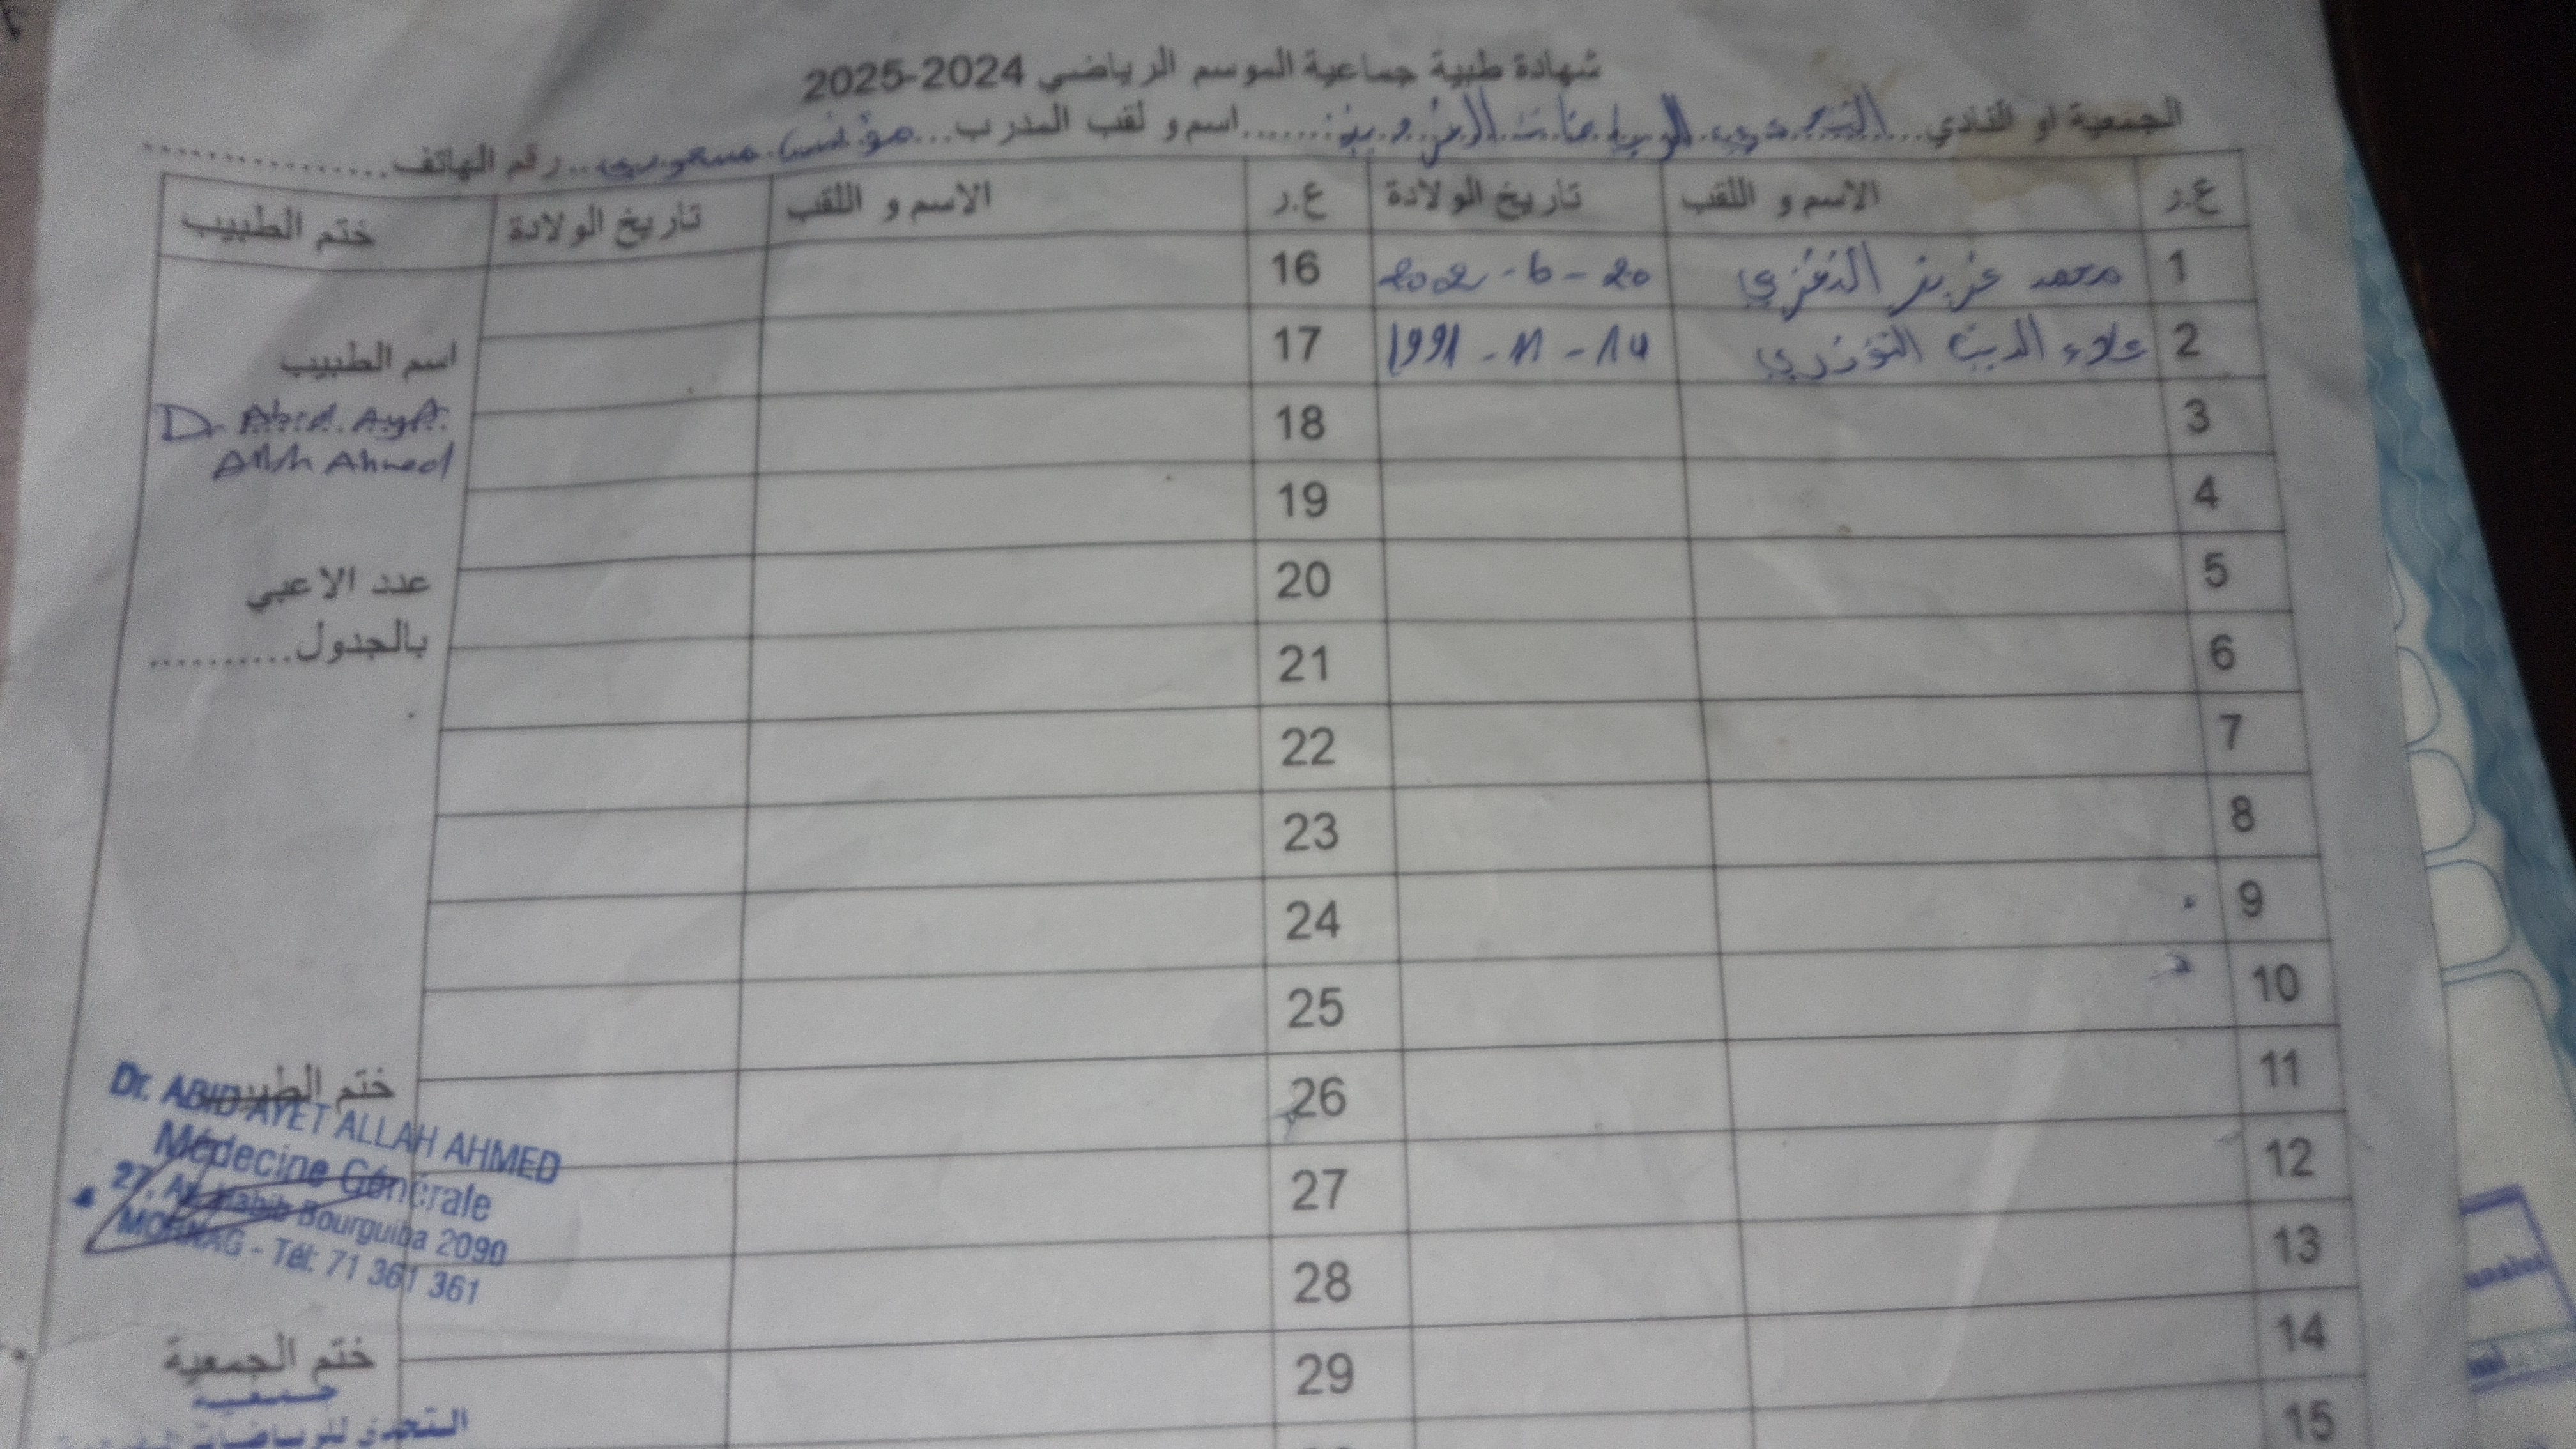 شهادة طبية جماعية الموسم الرياضي 2024-2025
الجمعية او النادي...التحدي للرياضات الفردية......اسم و لقب المدرب...مؤنس مسعودي...رقم الهاتف................
ع.ر الاسم و اللقب تاريخ الولادة ع.ر الاسم و اللقب تاريخ الولادة ختم الطبيب
1 محمد عزيز النفزي 20 - 6 - 2002 16
2 علاء الدين التوزري 14 - 11 - 1991 17
اسم الطبيب
3 18
Dr Abid Ayet
Allah Ahmed
4 19
5 20
عدد الاعبي
بالجدول..........
6 21
7 22
8 23
9 24
10 25
11 26
ختم الطبيب
Dr. ABID AYET ALLAH AHMED
Médecine Générale
27, Av. Habib Bourguiba 2090
MORNAG - Tél: 71 361 361
12 27
13 28
14 29
15
ختم الجمعية
جمعية
التحدي للرياضات